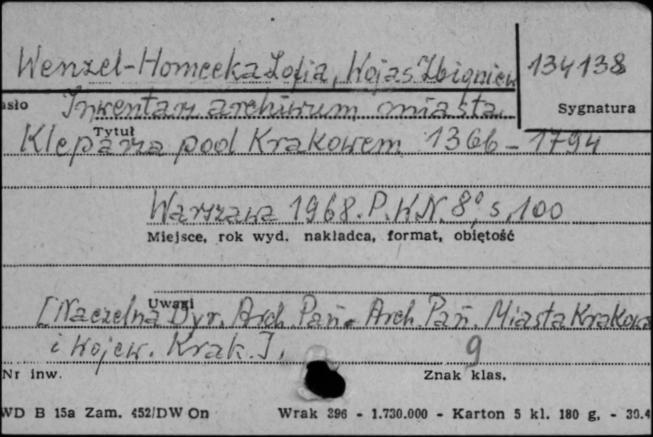 Wenzel-Homecka Zofia, Wojas Zbigniew
134138
asło
Inwentarz archiwum miasta
Sygnatura
Tytuł
Kleparza pod Krakowem 1366-1794
Warszawa 1968. P.W.N. 8°, s. 100
Miejsce, rok wyd. nakładca, format, objętość
Uwagi
[Naczelna Dyr. Arch. Pań. Arch. Pań. Miasta Krakowa
i Wojew. Krak.].
9
Nr inw.
Znak klas.
WD B 15a Zam. 452/DW On Wrak 296 - 1.730.000 - Karton 5 kl. 180 g. - 30.4